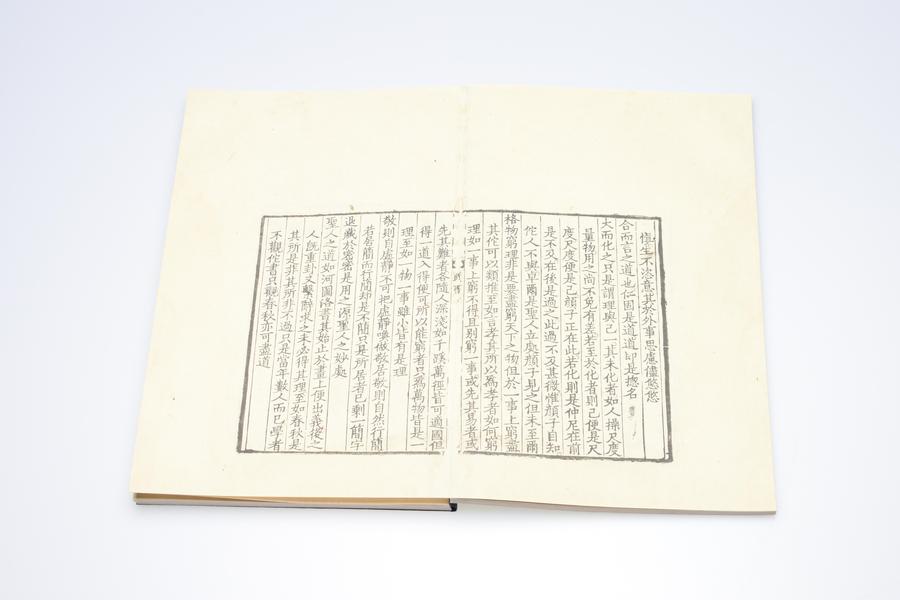 慎生不恣意其於外事思慮儘悠悠
合而言之道也仁固是道道卽是揔名
大而化之只是謂理與己一其未化者如人操尺度
量物用之尚不免有差若至於化者則己便是尺
度尺度便是己顔子正在此若化則是仲尼在前
是不及在後是過之此過不及甚微惟顔子自知
佗人不與卓爾是聖人立處顔子見之但未至爾
格物窮理非是要盡窮天下之物但於一事上窮盡
其佗可以類推至如言孝其所以爲孝者如何窮
理如一事上窮不得且別窮一事或先其易者或
先其難者各隨人深淺如千蹊萬徑皆可適國但
得一道入得便可所以能窮者只爲萬物皆是一
理至如一物一事雖小皆有是理
敬則自虛靜不可把虛靜喚做敬居敬則自然行簡
若居簡而行簡却是不簡只是所居者已剩一簡字
退藏於密密是用之源聖人之妙處
聖人之道如河圖洛書其始止於畫上便出義後之
人旣重卦又繫辭求之未必得其理至如春秋是
其所是非其所非不過只是當年數人而已學者
不觀佗書只觀春秋亦可盡道